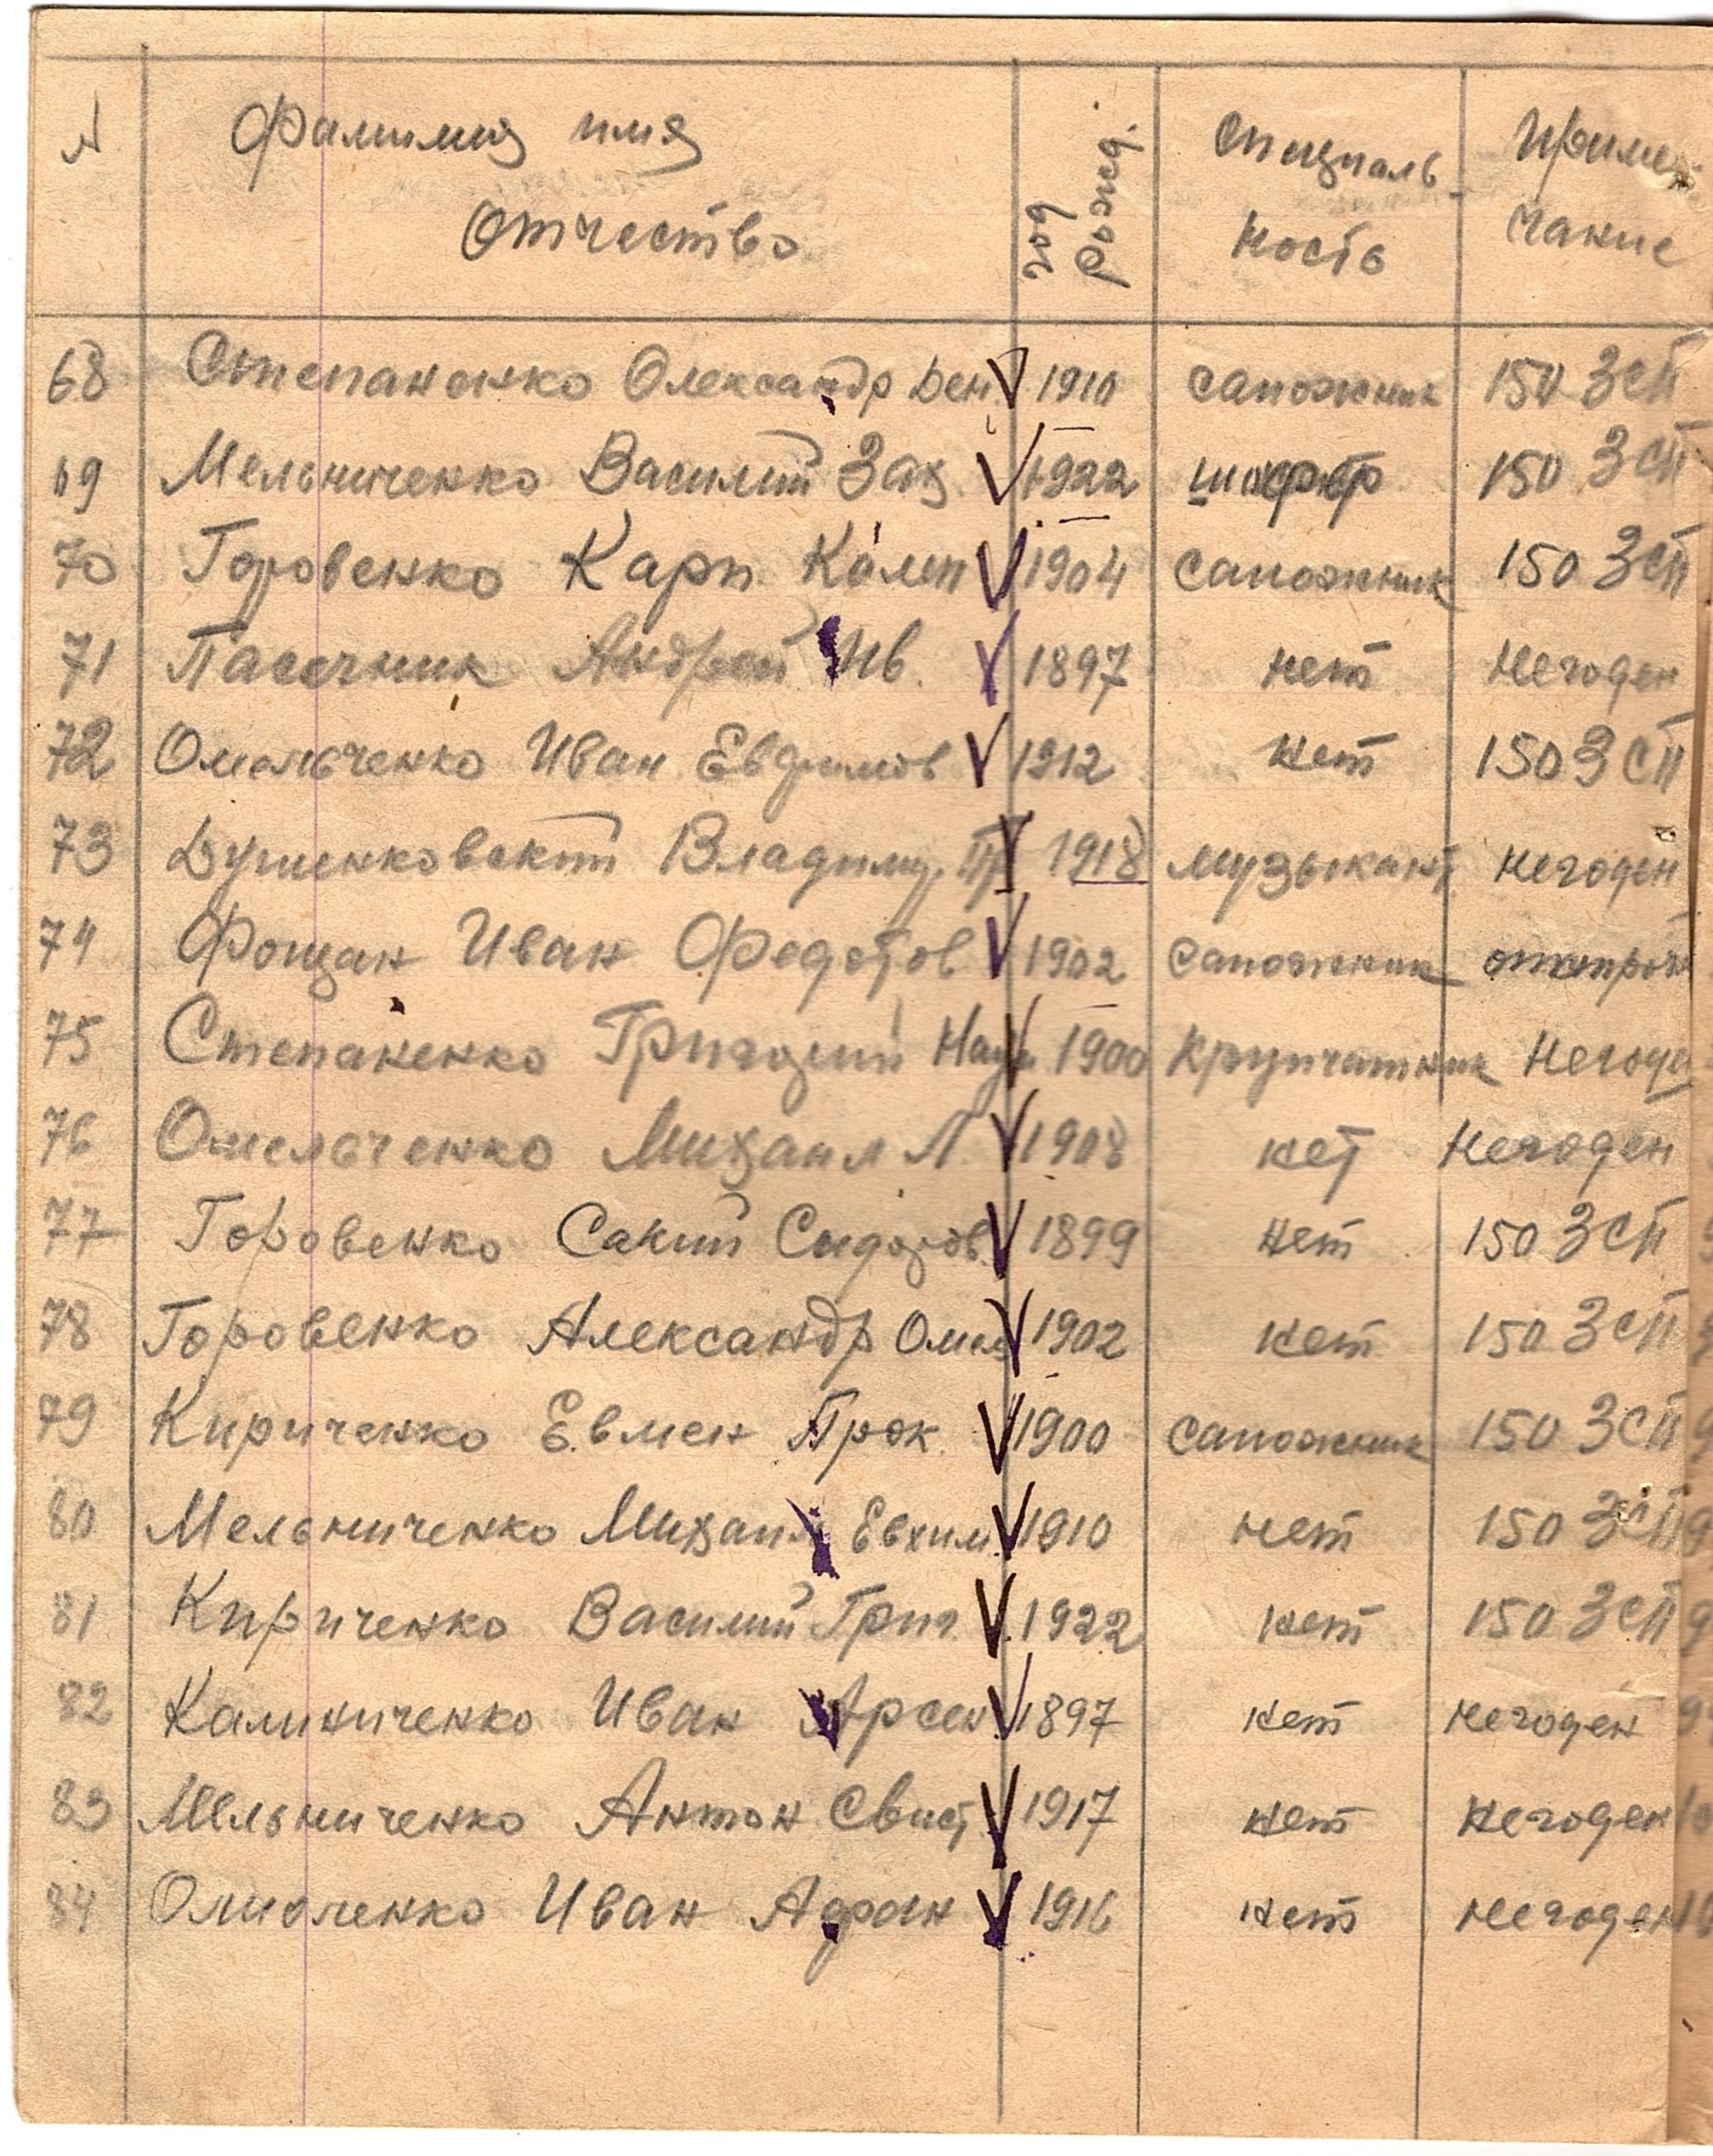 N Фамилия имя Отчество год рожд. Специаль-ность Приме-чание
68 Степаненко Олександр Ден. 1910 сапожник 150 ЗСП
69 Мельниченко Василий Зах. 1922 шофер 150 ЗСП
70 Горовенко Карп Кален 1904 сапожник 150 ЗСП
71 Пасечник Андрей Ив. 1897 нет Негоден
72 Омельченко Иван Евдимов 1912 нет 150 ЗСП
73 Душенковский Владимир Пр 1918 музыкант негоден
74 Фощан Иван Федотов 1902 сапожник отстроч
75 Степаненко Григорий Наум 1900 крупчатник Негоде
76 Омельченко Михаил Л. 1908 нет Негоден
77 Горовенко Сакий Сидоров. 1899 нет 150 ЗСП
78 Горовенко Александр Омел 1902 нет 150 ЗСП
79 Кириченко Евмен Прок. 1900 сапожник 150 ЗСП
80 Мельниченко Михаил Евхим. 1910 нет 150 ЗСП
81 Кириченко Василий Григ. 1922 нет 150 ЗСП
82 Калиниченко Иван Арсен 1897 нет негоден
83 Мельниченко Антон Свист 1917 нет Негоден
84 Иван 1916 нет Негоден